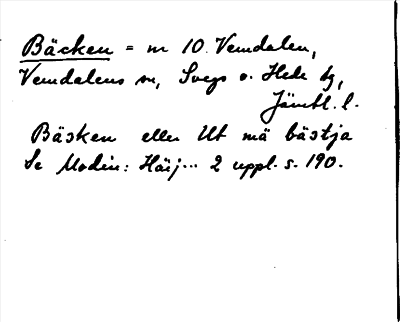 Bäcken = nr 10. Vemdalen,
Vemdalens sn, Svegs o. Hede tg,
Jämtl. l.
Bäsken eller Ut mä bästja
Se Modin: Härj... 2 uppl. s. 190.